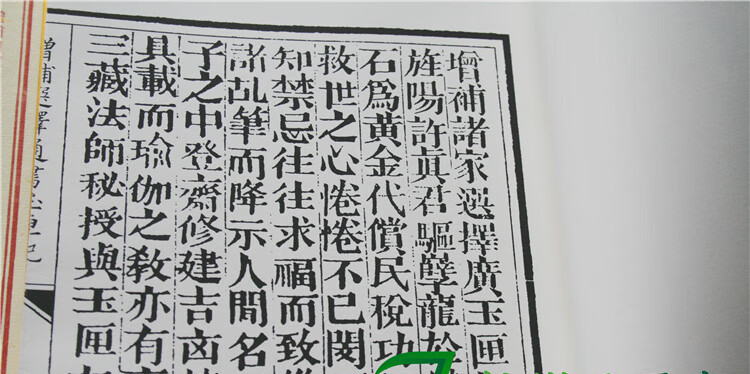 增補諸家選擇廣玉匣
旌陽許真君驅孽龍於
石爲黄金代償民稅功
救世之心惓惓不已閔
知禁忌往往求福而致
諸乩筆而降示人間名
子之中登齋修建吉凶
具載而瑜伽之教亦有
三藏法師秘授與玉匣
增補選擇通書玉匣記